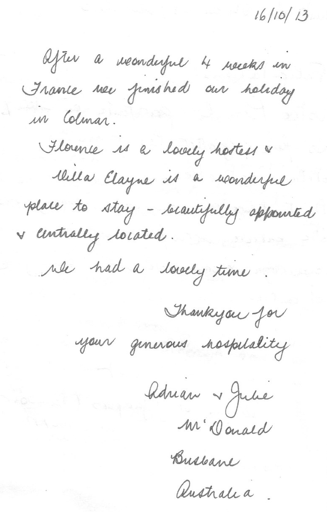 16/10/13
After a wonderful 4 weeks in
France we finished our holiday
in Colmar.
Florence is a lovely hostess &
Villa Elayne is a wonderful
place to stay – beautifully appointed
& centrally located.
We had a lovely time.
Thankyou for
your generous hospitality
Adrian & Julie
McDonald
Brisbane
Australia.